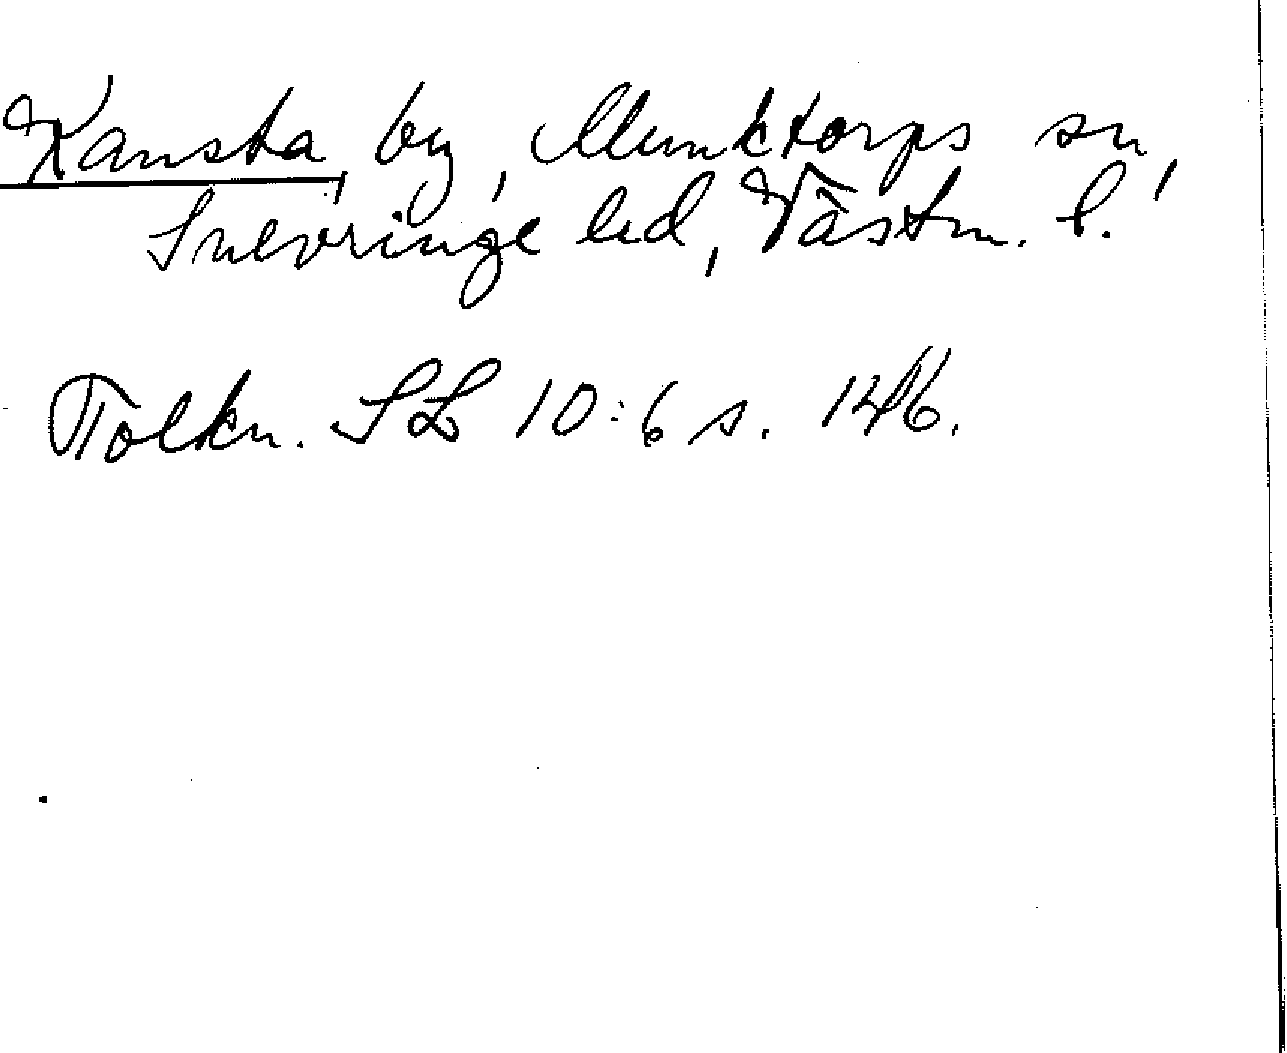 Kansta, by, Munktorps sn,
Snevringe hd, Västm. l.
Tolkn. SL 10:6 s. 146.